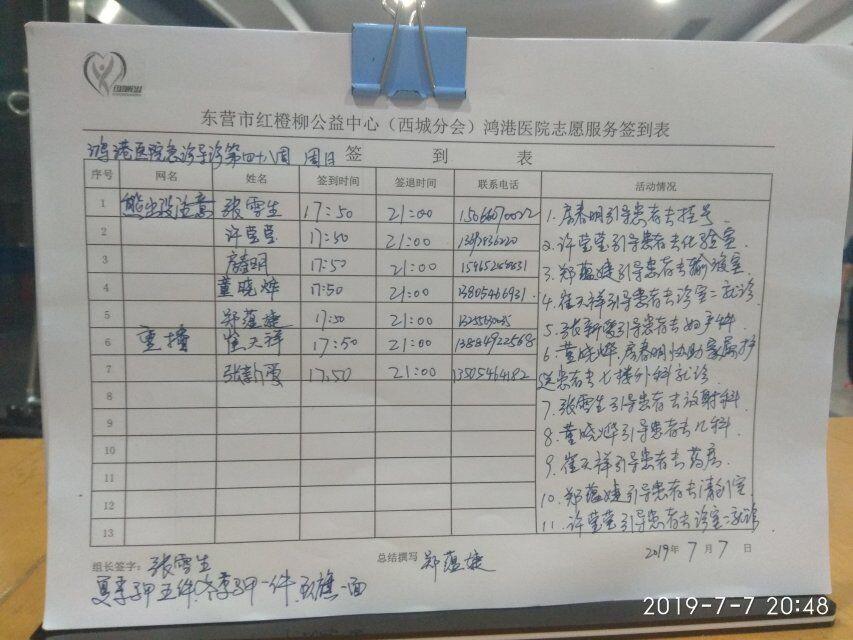 东营市红橙柳公益中心（西城分会）鸿港医院志愿服务签到表
鸿港医院急诊导诊第四十八周 周日 签 到 表
序号 网名 姓名 签到时间 签退时间 联系电话 活动情况
1 熊出没注意 张雪生 17:50 21:00
2 许莹莹 17:50 21:00
3 房春明 17:50 21:00
4 董晓烨 17:50 21:00 13805466931
5 郑蕴婕 17:50 21:00
6 重播 崔天祥 17:50 21:00 13884922568
7 张新霞 17:50 21:00 13505464182
8
9
10
11
12
13
1. 房春明引导患者去挂号
2. 许莹莹引导患者去化验室
3. 郑蕴婕引导患者去输液室
4. 崔天祥引导患者去诊室二就诊
5. 张新霞引导患者去妇产科
6. 董晓烨、房春明协助家属护
送患者去七楼外科就诊
7. 张雪生引导患者去放射科
8. 董晓烨引导患者去儿科
9. 崔天祥引导患者去药房
10. 郑蕴婕引导患者去清创室
11. 许莹莹引导患者去诊室二就诊
组长签字：张雪生 总结撰写 郑蕴婕 2019年7月7日
夏季马甲五件，冬季马甲一件，红旗一面
2019-7-7 20:48